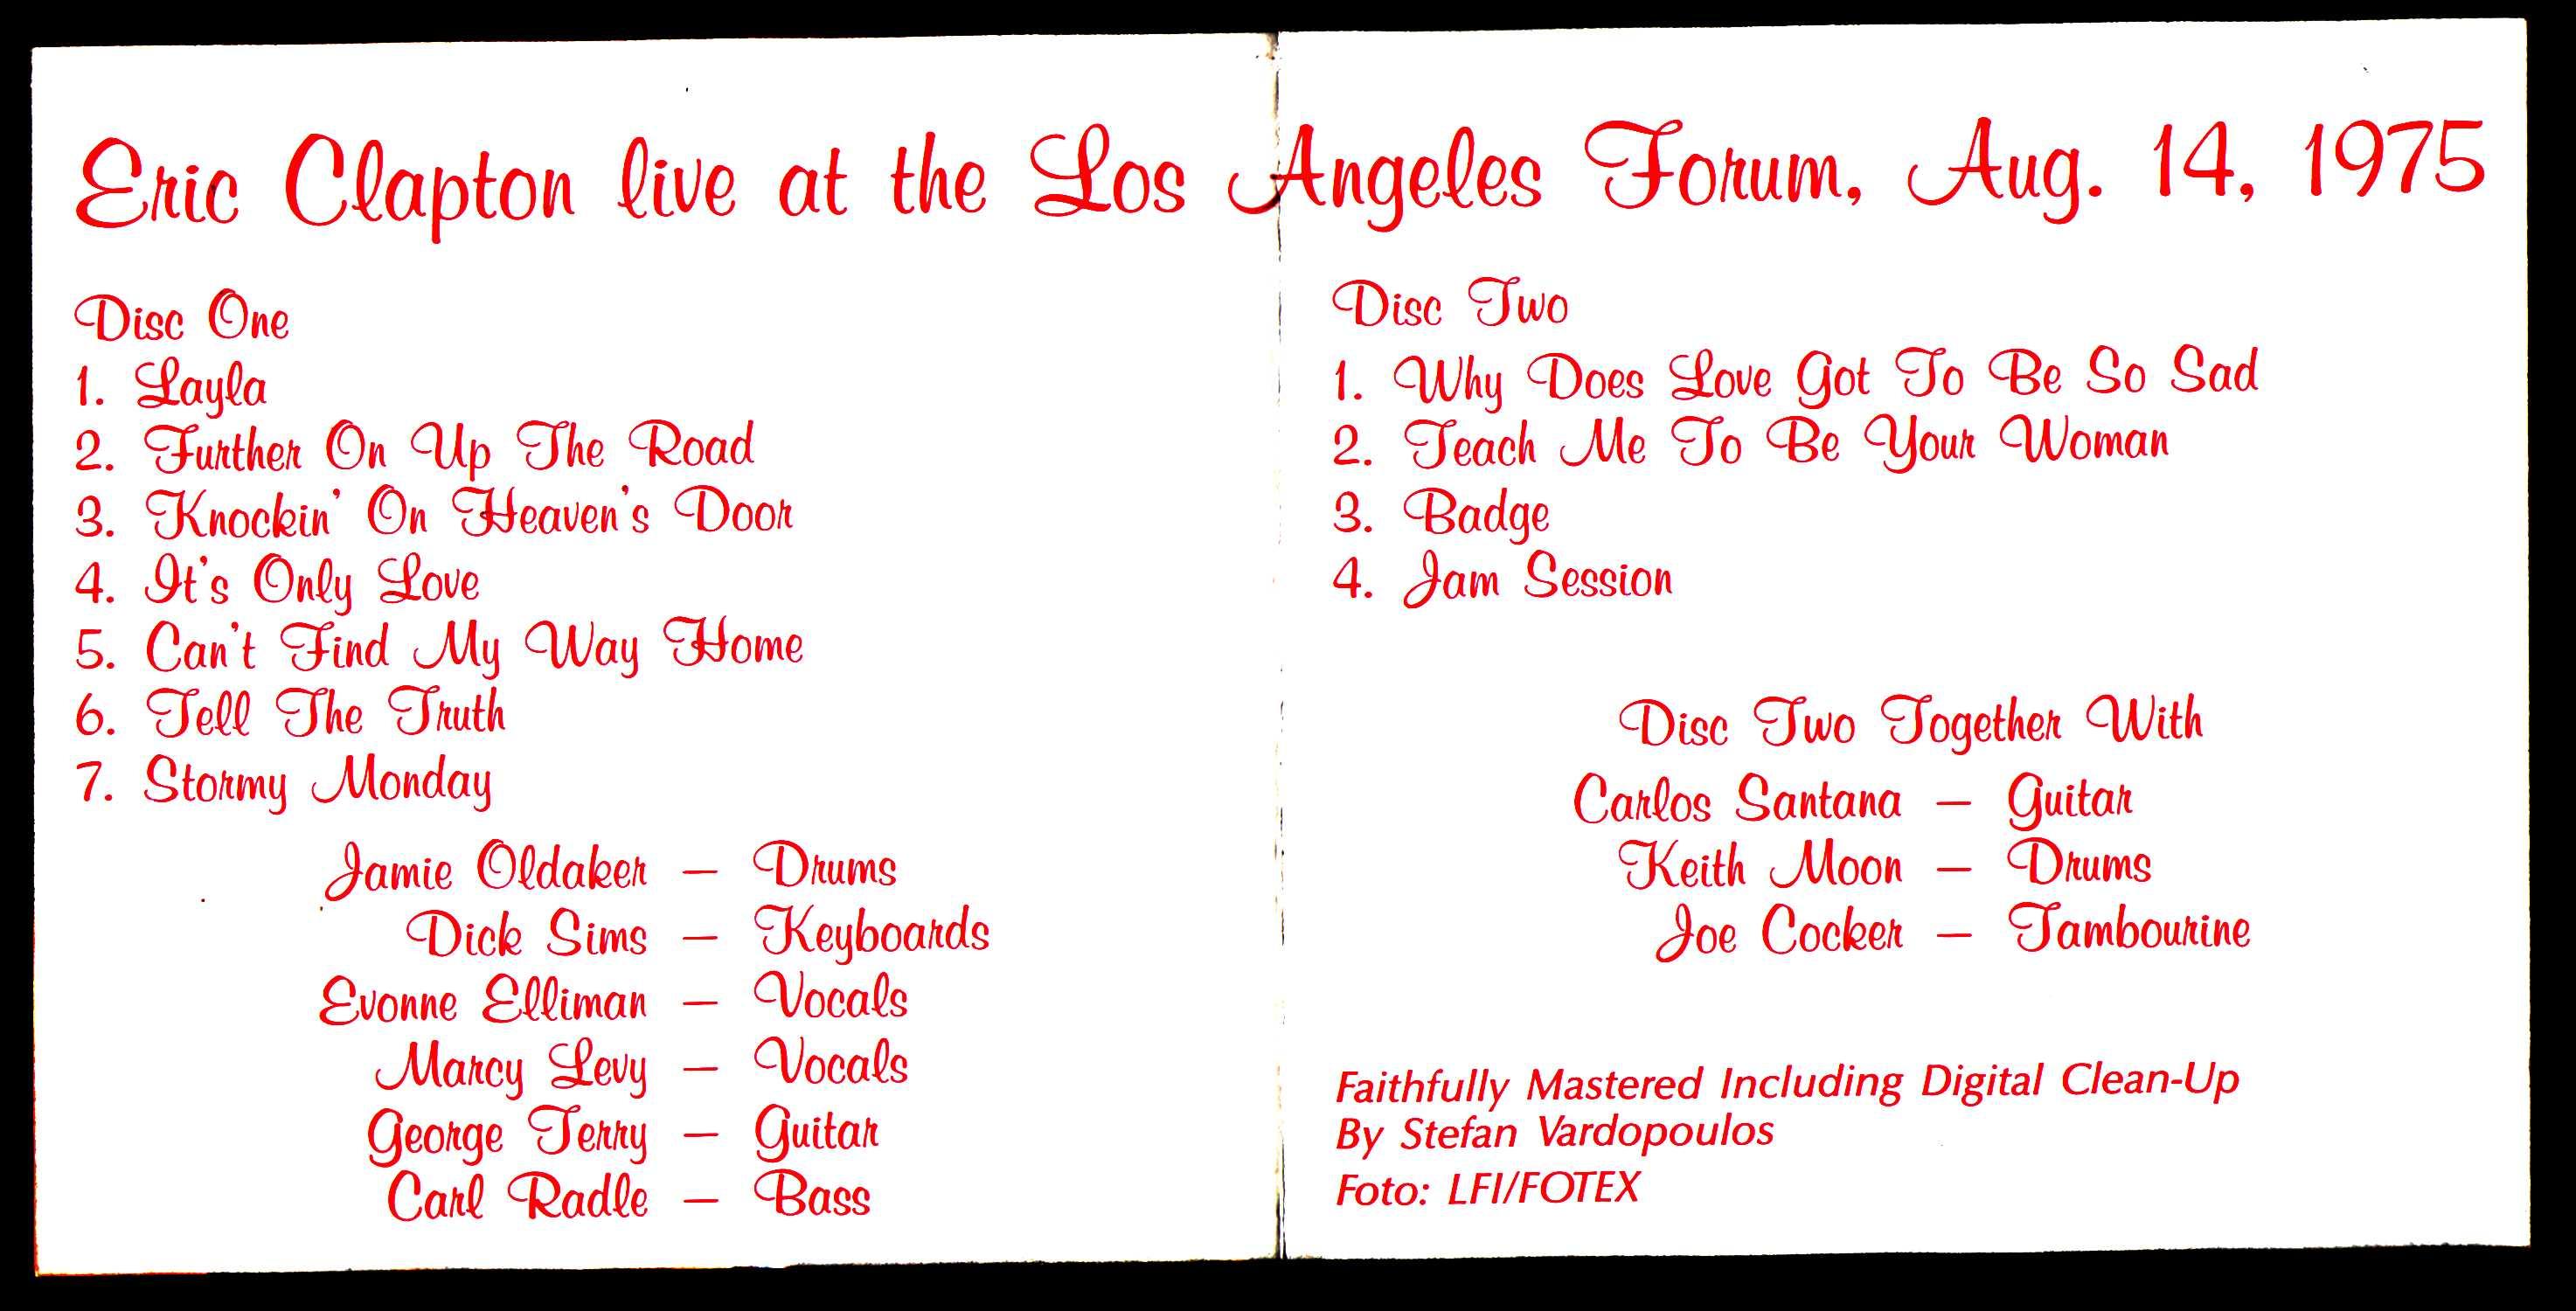 Eric Clapton live at the Los Angeles Forum, Aug. 14, 1975
Disc One
1. Layla
2. Further On Up The Road
3. Knockin' On Heaven's Door
4. It's Only Love
5. Can't Find My Way Home
6. Tell The Truth
7. Stormy Monday
Jamie Oldaker – Drums
Dick Sims – Keyboards
Evonne Elliman – Vocals
Marcy Levy – Vocals
George Terry – Guitar
Carl Radle – Bass
Disc Two
1. Why Does Love Got To Be So Sad
2. Teach Me To Be Your Woman
3. Badge
4. Jam Session
Disc Two Together With
Carlos Santana – Guitar
Keith Moon – Drums
Joe Cocker – Tambourine
Faithfully Mastered Including Digital Clean-Up
By Stefan Vardopoulos
Foto: LFI/FOTEX